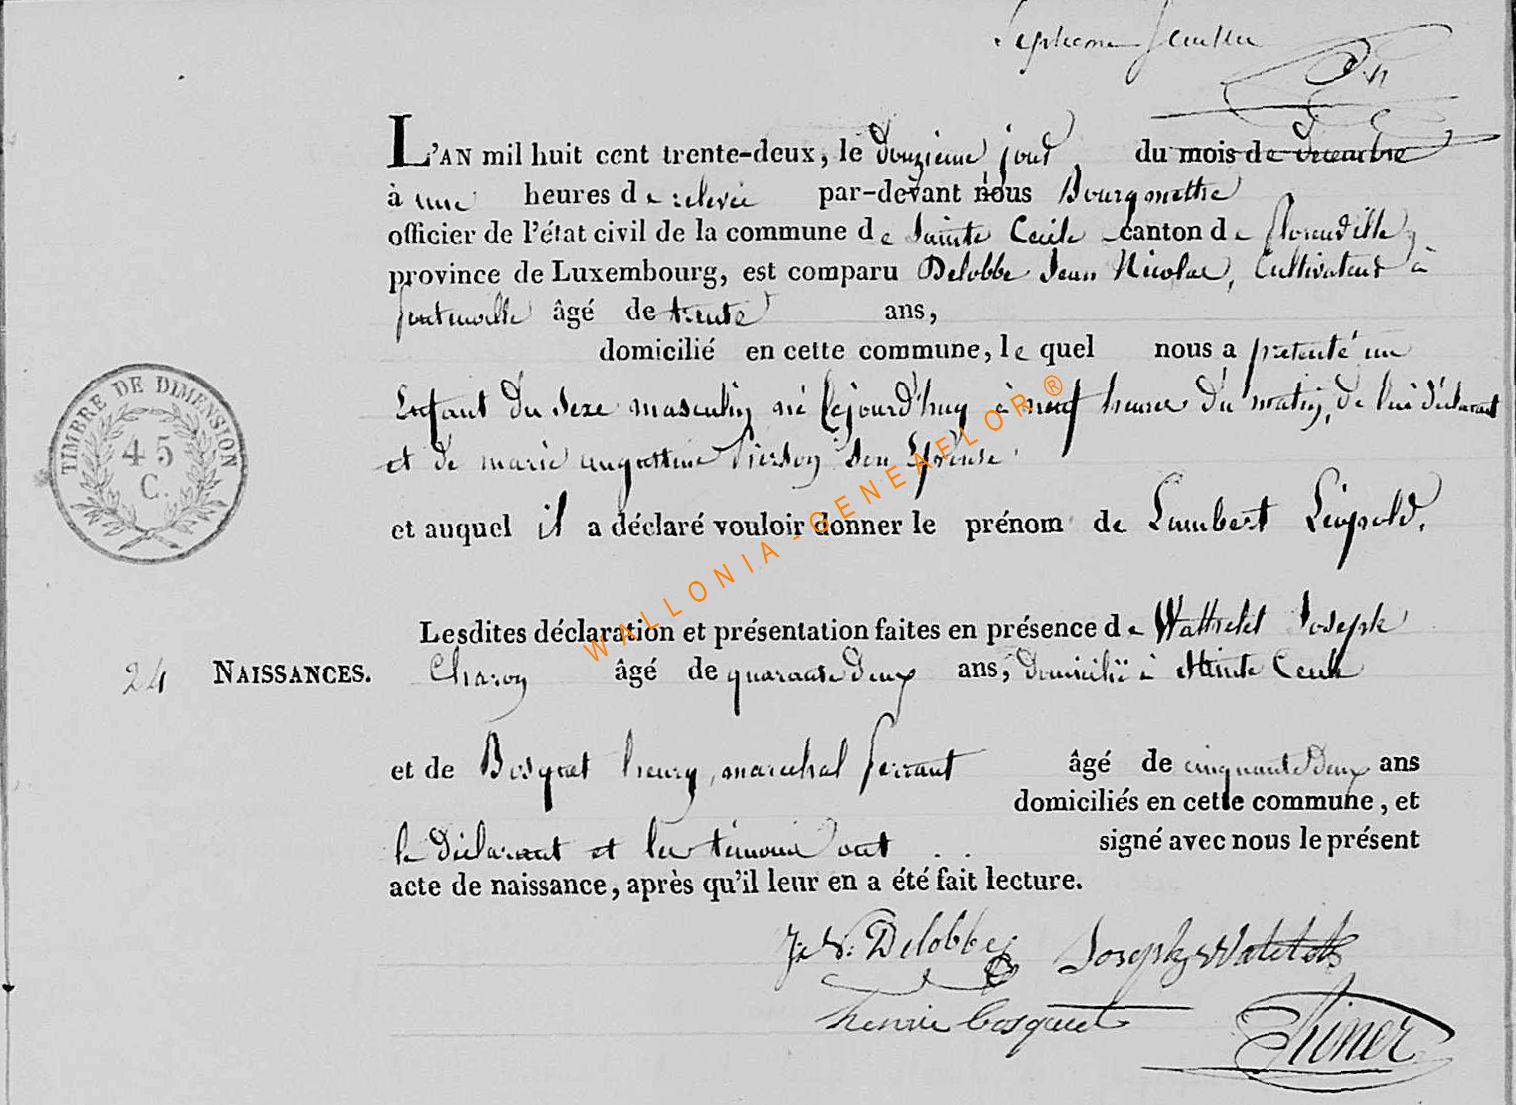 L'AN mil huit cent trente-deux, le douzieme jour du mois de decembre
à une heures de relevée par-devant nous Bourgmettre
officier de l'état civil de la commune de Sainte Cecile canton de florenville,
province de Luxembourg, est comparu Delobbe Jean Nicolas, Cultivateur à
fontenoille âgé de trente ans,
domicilié en cette commune, le quel nous a présenté un
Enfant du sexe masculin né cejourd'huy à neuf heures du matin, de lui déclarant
et de marie augustine Pierson son Epouse
et auquel il a déclaré vouloir donner le prénom de Lambert Léopold.
Lesdites déclaration et présentation faites en présence de Joseph
24 NAISSANCES. Charon âgé de quarante deux ans, domicilié à Sainte Cecile
et de Bosquet henry, marechal ferrant âgé de cinquante deux ans
domiciliés en cette commune, et
le déclarant et les témoins ont signé avec nous le présent
acte de naissance, après qu'il leur en a été fait lecture.
J. N. Delobbe Joseph
henrie bosquet
TIMBRE DE DIMENSION
45
C.
WALLONIA-GENEAFLOR®